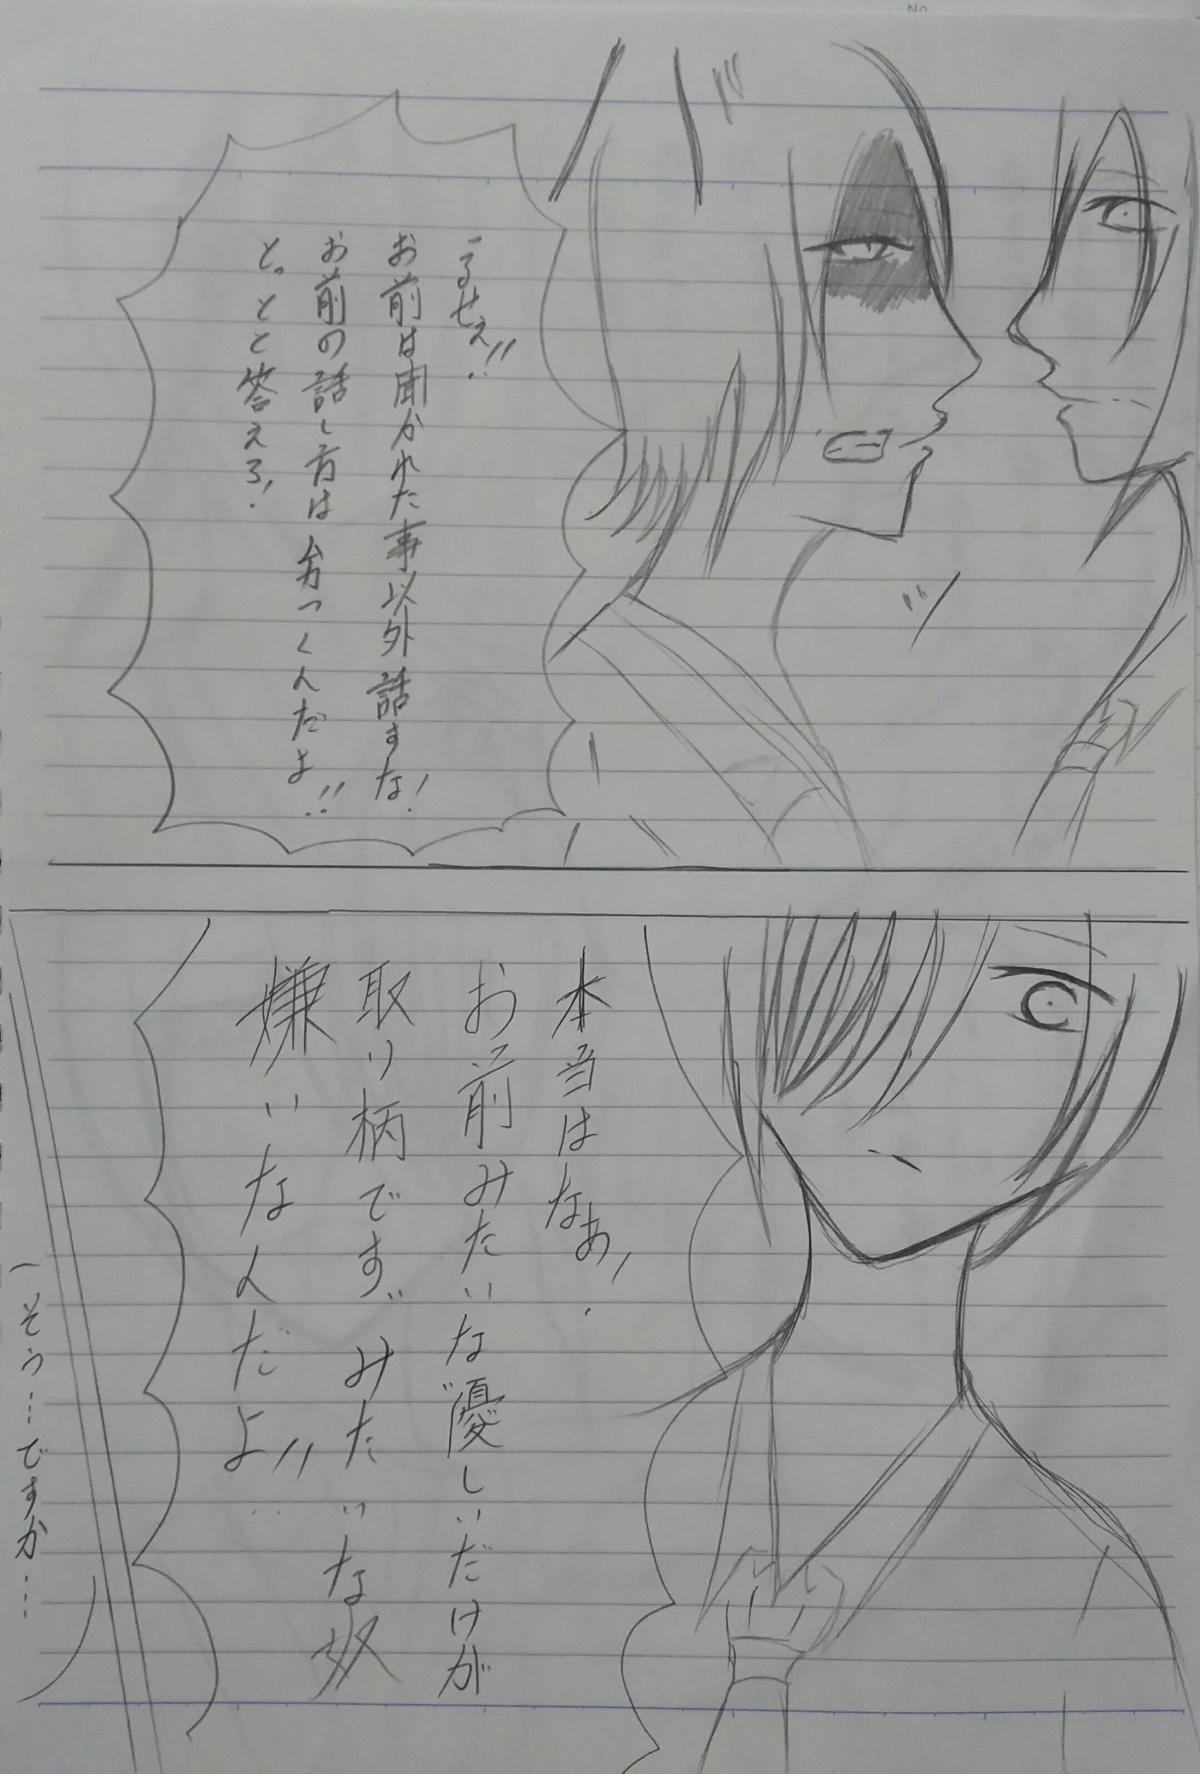 No
うるせぇ!!
お前は聞かれた事以外話すな!
お前の話し方はムカつくんだよ!!
とっとと答えろ!
本当はなぁ!
お前みたいな"優しいだけが
取り柄です"みたいな奴
嫌いなんだよ!!
(そう…ですか…